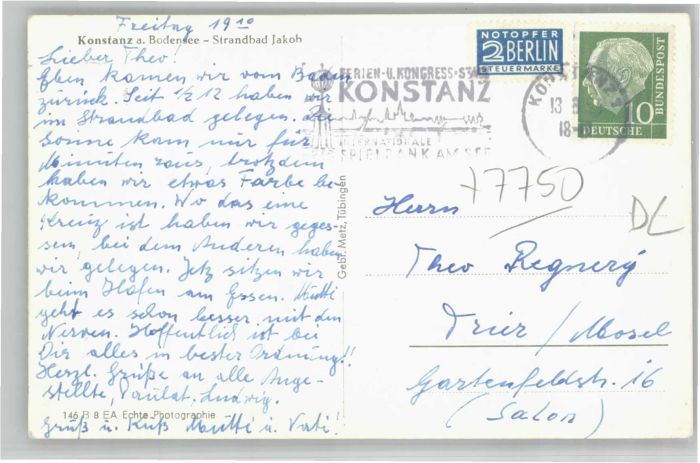 Freitag 19¹⁰
Konstanz a. Bodensee – Strandbad Jakob
Lieber Theo!
Eben kamen wir vom Baden
zurück. Seit ½ 12 haben wir
im Strandbad gelegen. Die
Sonne kam nur für
Minuten raus, trotzdem
haben wir etwas Farbe be-
kommen. Wo das eine
Kreuz ist haben wir geges-
sen, bei dem Anderen haben
wir gelegen. Jetz sitzen wir
beim Hafen am Essen. Mutti
geht es schon besser mit den
Nerven. Hoffentlich ist bei
Dir alles in bester Ordnung!!
Herzl. Grüße an alle Ange-
stellte, Ludwig.
146 B 8 EA Echte Photographie
Gruß u. Kuß Mutti u. Vati!
Gebr. Metz, Tübingen
FERIEN-U. KONGRESS-STADT
KONSTANZ
INTERNATIONALE
SPIELBANK AM SEE
NOTOPFER
2 BERLIN
STEUERMARKE
KONSTANZ
13
18
10
DEUTSCHE
BUNDESPOST
+7750
DL
Herrn
Theo Regnery
Trier / Mosel
Gartenfeldstr. 16
(Salon)